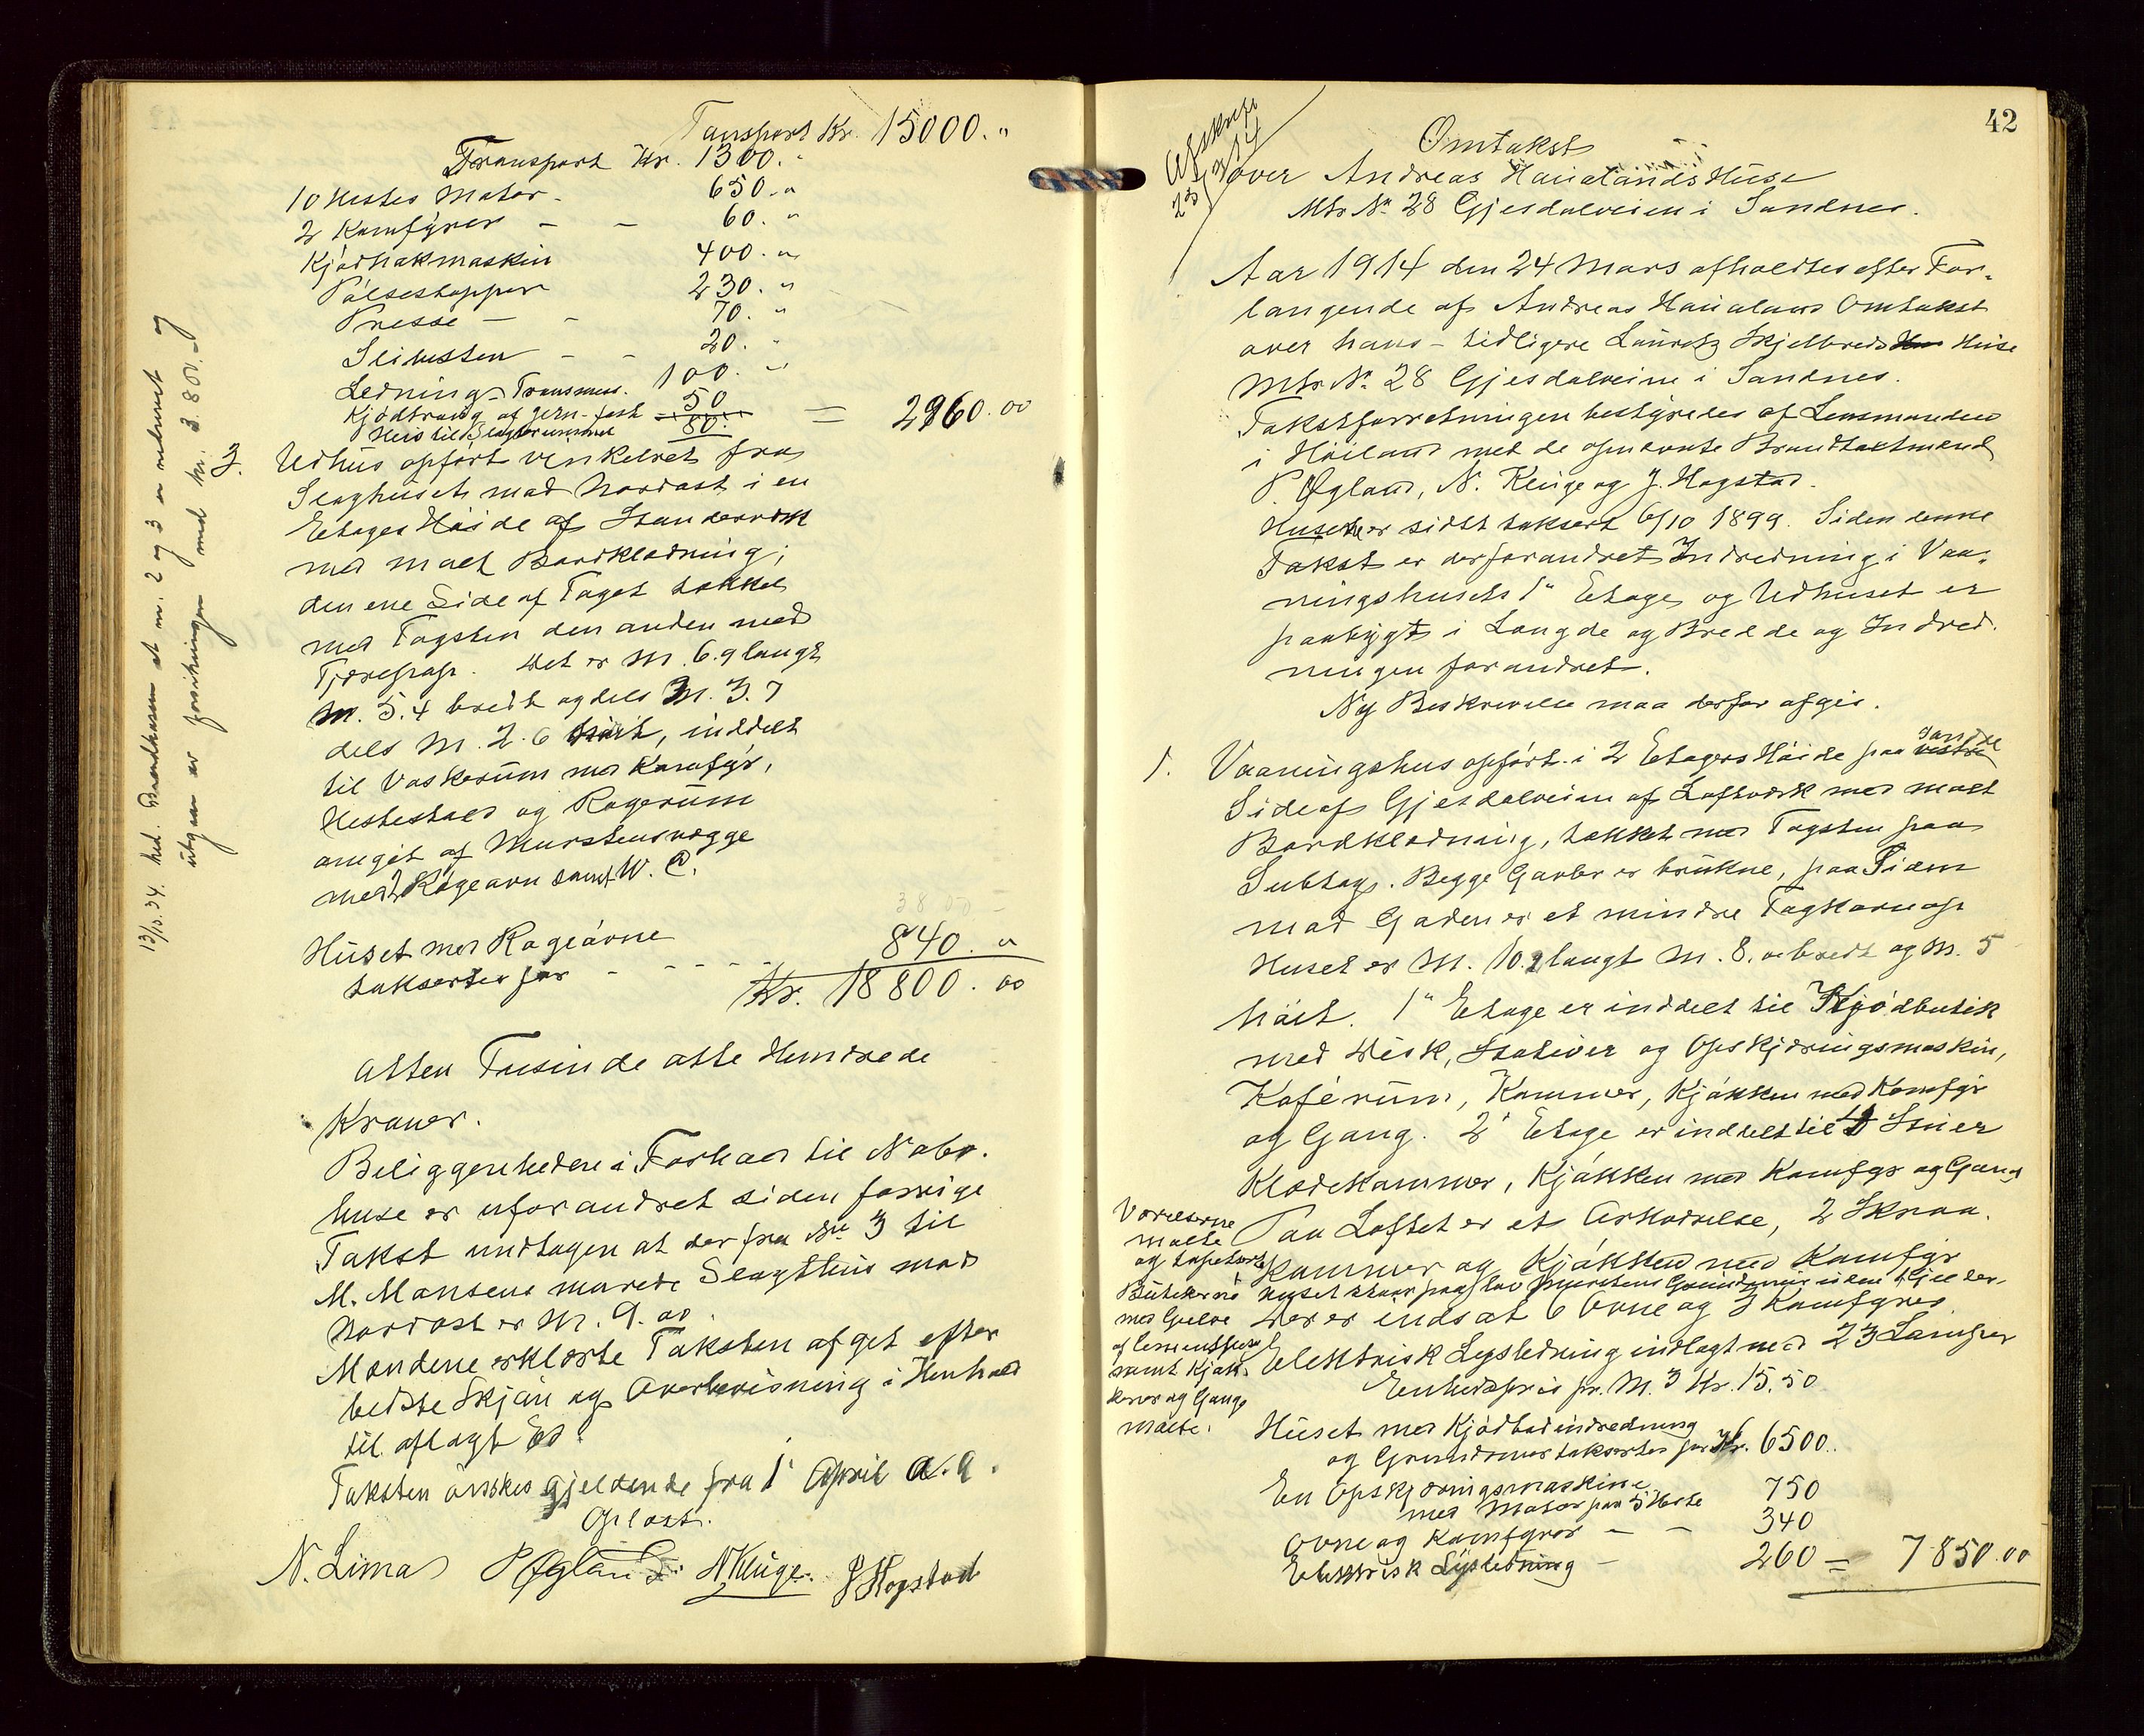 Transport Kr. 15000."
Transport Kr. 1300.-
10 Hestes Motor - 650."
2 Komfyrer - - 60."
Kjødhakmaskin 400."
Pølsestopper 230."
Presse - - 70."
Slibesten - - 20."
Ledning, Transmis. 100."
Kjødtrang af Jern-fast 50
Heis til Slagterummet 80. = 2960.00
3. Udhus opført vinkelret fra
Slaghuset mod Nordøst i en
Etages Høide af Standerværk
med malt Bordklædning;
den ene Side af Taget tækket
med Tagsten den anden med
Tjærepap. Det er M. 6.9 langt
M. 5.4 bredt og dels M. 3.7
dels M. 2.6 høit, inddelt
til Vaskerum med Komfyr,
Hestestald og Røgerum
omgit af Murstensvægge
med 2 Røgeovn samt W. C.
3800 -
Huset med Røgeovne
takserter for - - - - - 840."
Kr. 18800.00
Atten Tusinde otte Hundrede
Kroner.
Beliggenheden i Forhold til Nabo-
huse er uforandret siden forrige
Takst undtagen at der fra No 3 til
M. Monsens murede Slagthus mod
Nordøst er M. 9.00.
Mændene erklærte Taksten afget efter
bedste Skjøn og Overbevisning i Henhold
til aflagt Ed.
Taksten ønskes gjeldende fra 1' April d. A.
Oplæst.
N. Lima P Øgland N Kluge. J Hogstad
13/10.34. hed. Brandkassen at nr. 2 og 3 er nedrevet og
utgaar av forsikringen med kr. 3.800.-
42
Afskrift
25/3 14
Omtakst
over Andreas Haualands Huse
Mtr No 28 Gjesdalveien i Sandnes.
Aar 1914 den 24 Mars afholdtes efter For-
langende af Andreas Haualand Omtakst
over hans - tidligere Lauretz Skjelbreds Huse
Mtr. No 28 Gjesdalveien i Sandnes.
Takstforretningen bestyredes af Lensmanden
i Høiland med de opnævnte Brandtakstmænd
P. Øgland, N. Kluge og J. Hogstad.
Husene er sidst taksert 6/10 1899. Siden denne
Takst er der forandret Indredning i Vaa-
ningshusets 1" Etage og Udhuset er
paabygt i Længde og Bredde og Indred-
ningen forandret.
Ny Beskrivelse maa derfor afgis.
1. Vaaningshus opført i 2 Etagers Høide paa søndre
Side af Gjesdalveien af Laftværk med malt
Bordklædning, tækket med Tagsten paa
Subtag. Begge Gavler er brukne, paa Siden
mod Gaden er et mindre Tagkarnap
Huset er M. 10.2 langt M. 8.0 bredt og M. 5
høit. 1" Etage er inddelt til Kjødbutik
med Disk, Stativer og Opskjæringsmaskin,
Kaférum, Kammer, Kjøkken med Komfyr
og Gang. 2' Etage er inddelt til Stuer
Klædekammer, Kjøkken med Komfyr og Gang
Paa Loftet er et Arkværelse, 2 Skraa-
kammer og Kjøkken med Komfyr
Huset staar paa lav Murstens Grundmur uden Kjelder.
Der er indsat 6 Ovne og 3 Komfyrer.
Elektrisk Lysledning indlagt med 23 Lamper
Enhedspris pr. M. 3 Kr. 15.50
Værelserne
malte
og tapetserte
Butikerne
med Gulve
af Cementfliser
samt Kjøk-
kener og Gange
malte.
Huset med Kjødbodindredning
og Grundmur takserter for Kr. 6500.
En Opskjæringsmaskine
med Motor paa 5 Heste 750
Ovne og Komfyrer - - 340
Elektrisk Lysledning - 260 = 7850.00